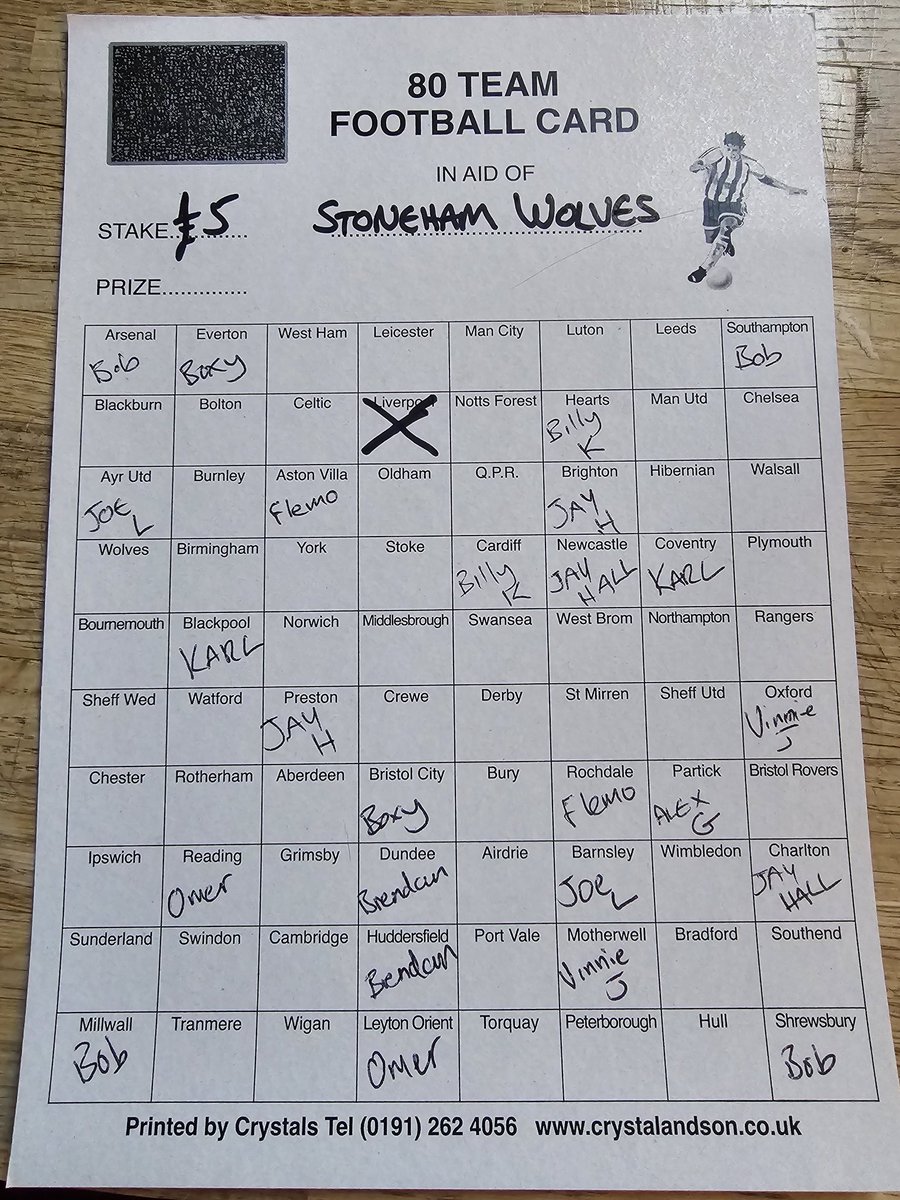 80 TEAM
FOOTBALL CARD
IN AID OF
STAKE.............. £5
STONEHAM WOLVES
PRIZE..............
Arsenal Everton West Ham Leicester Man City Luton Leeds Southampton
Bob Boxy Bob
Blackburn Bolton Celtic Liverpool Notts Forest Hearts Man Utd Chelsea
Billy K
Ayr Utd Burnley Aston Villa Oldham Q.P.R. Brighton Hibernian Walsall
JOE L Flemo JAY H
Wolves Birmingham York Stoke Cardiff Newcastle Coventry Plymouth
Billy K JAY HALL KARL
Bournemouth Blackpool Norwich Middlesbrough Swansea West Brom Northampton Rangers
KARL
Sheff Wed Watford Preston Crewe Derby St Mirren Sheff Utd Oxford
JAY H Vinnie J
Chester Rotherham Aberdeen Bristol City Bury Rochdale Partick Bristol Rovers
Boxy Flemo ALEX G
Ipswich Reading Grimsby Dundee Airdrie Barnsley Wimbledon Charlton
Omer Brendan JOE L JAY HALL
Sunderland Swindon Cambridge Huddersfield Port Vale Motherwell Bradford Southend
Brendan Vinnie J
Millwall Tranmere Wigan Leyton Orient Torquay Peterborough Hull Shrewsbury
Bob Omer Bob
Printed by Crystals Tel (0191) 262 4056 www.crystalandson.co.uk